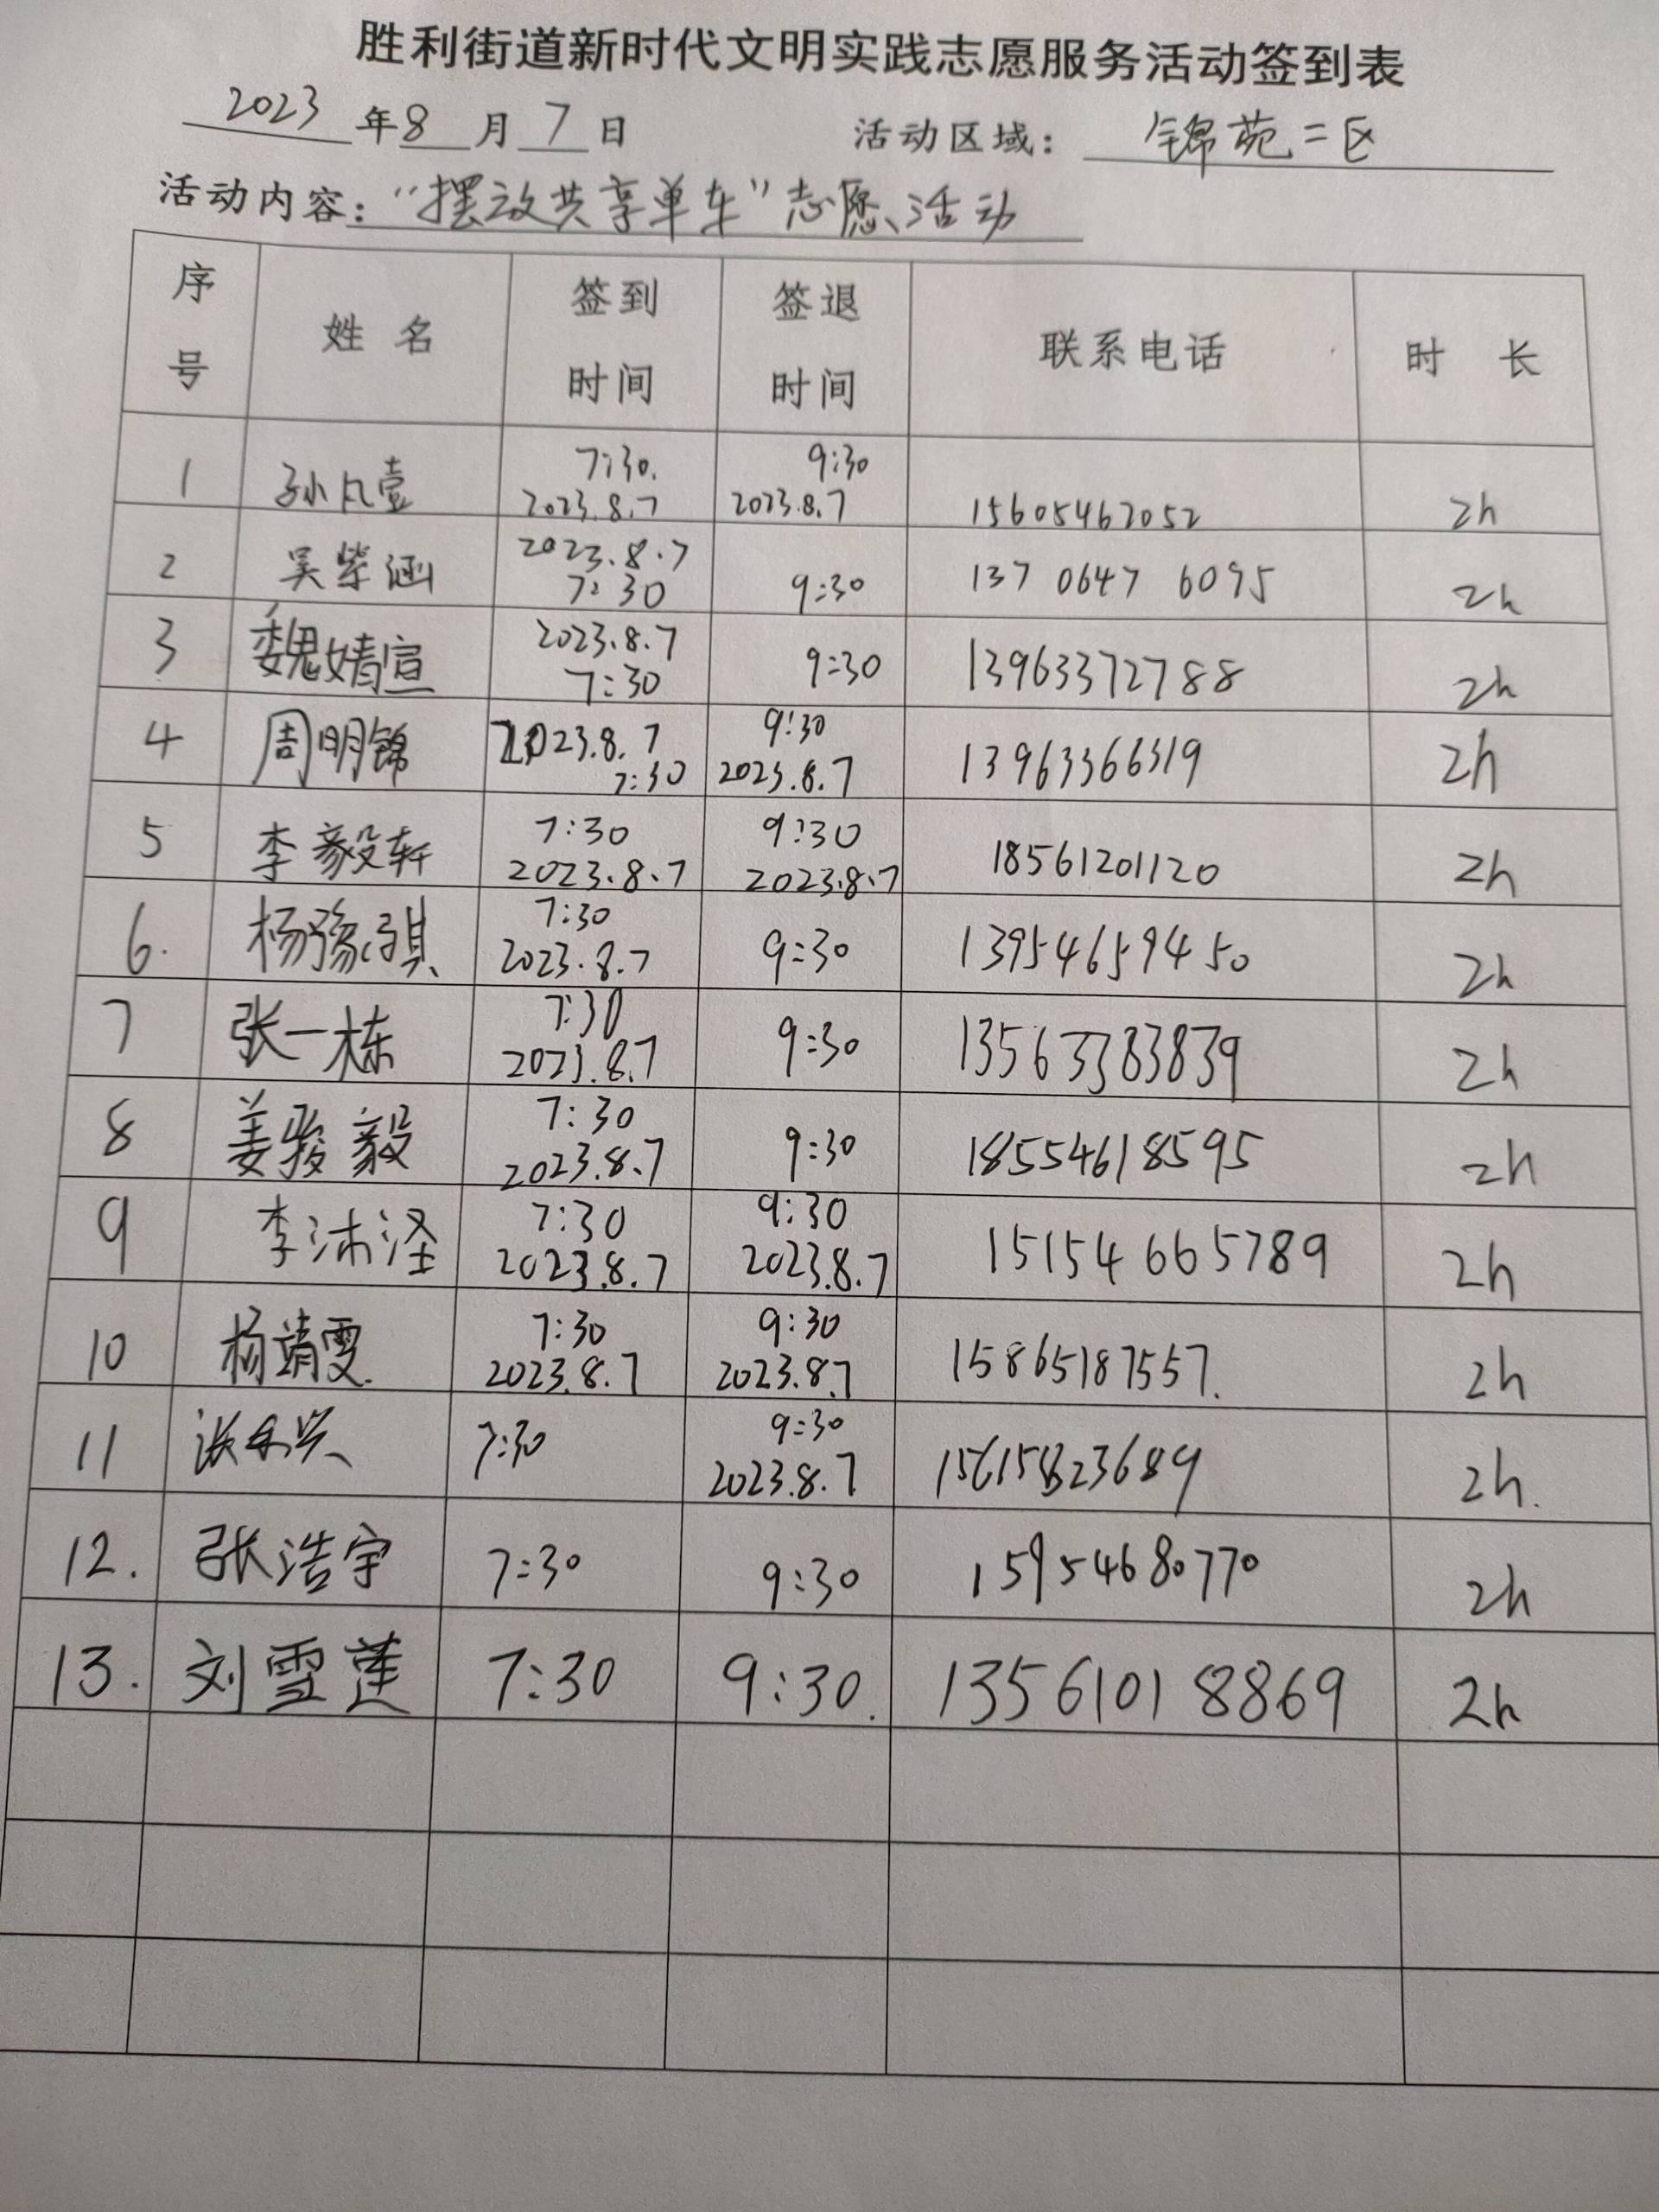 胜利街道新时代文明实践志愿服务活动签到表
2023年8月7日 活动区域：锦苑二区
活动内容：“摆放共享单车”志愿活动
序号 姓名 签到时间 签退时间 联系电话 时长
1 孙凡壹 7:30. 2023.8.7 9:30 2023.8.7 15605467052 2h
2 吴紫涵 2023.8.7 7:30 9:30 137 0647 6095 2h
3 魏婧宣 2023.8.7 7:30 9:30 13963372788 2h
4 周明锦 2023.8.7 7:30 9:30 2023.8.7 13963366319 2h
5 李毅轩 7:30 2023.8.7 9:30 2023.8.7 18561201120 2h
6. 杨豫琪 7:30 2023.8.7 9:30 13954659450 2h
7 张一栋 7:30 2023.8.7 9:30 13563383839 2h
8 姜骏毅 7:30 2023.8.7 9:30 18554618595 2h
9 李沐泽 7:30 2023.8.7 9:30 2023.8.7 15154665789 2h
10 杨靖雯. 7:30 2023.8.7 9:30 2023.8.7 15865187557. 2h
11 7:30 9:30 2023.8.7 15615823689 2h.
12. 张浩宇 7:30 9:30 15954680770 2h
13. 刘雪莲 7:30 9:30. 13561018869 2h